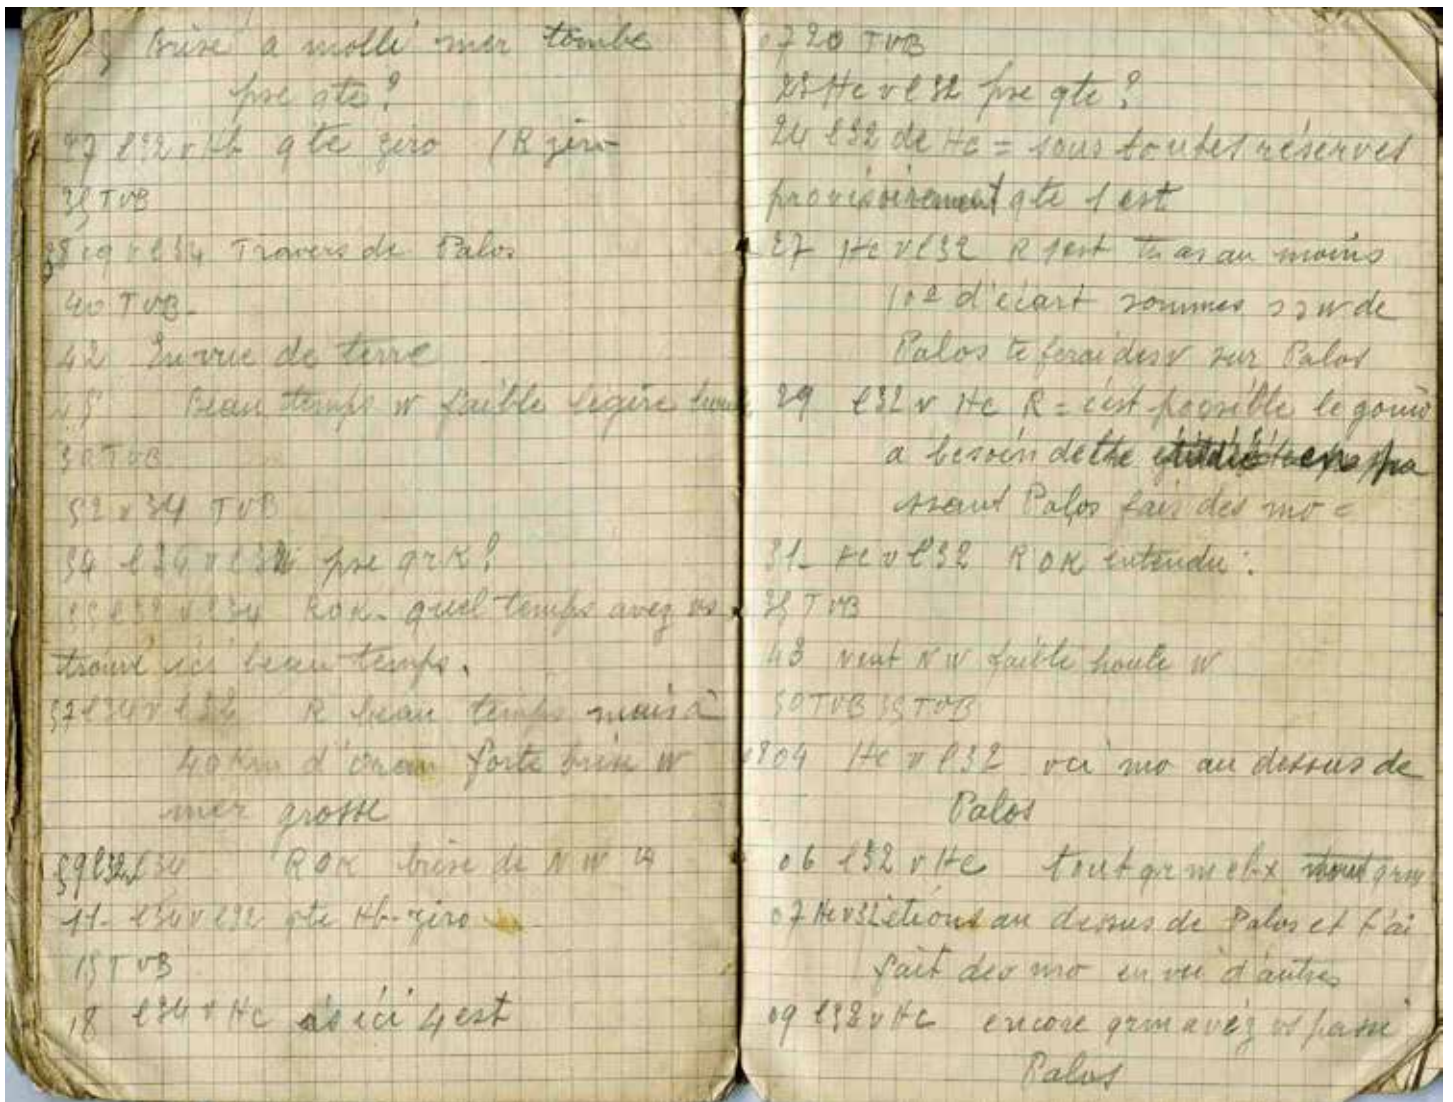 Brise a molli mer tombe
pse qte ?
27 l32 v Hb qte zéro / R zéro
35 TVB
Travers de Palos
40 TVB-
42 En vue de terre
Beau temps w faible légère
50 TVB
52 v 34 TVB
54 l34 v l32 pse grk ?
55 l32 v l34 ROK- quel temps avez vs
trouvé ici beau temps.
57 l34 v l32 R beau temps mais à
40 Km d'Oran forte brise w
mer grosse
59 l32 l34 ROK brise de NW
11- l34 v l32 qte Hb-zéro
15 TVB
18 l34 v Hc ici 4 est
0720 TVB
23 Hc v l32 pse qte ?
24 l32 de Hc = sous toutes réserves
provisoirement qte 1 est
27 Hc v l32 R 1 est tu as au moins
10º d'écart sommes de
Palos te ferai des v sur Palos
29 l32 v Hc R = c'est possible le gonio
a besoin
ssant Palos fais des mo =
31- Hc v l32 ROK entendu :
35 TVB
43 vent NW faible houle w
50 TVB 55 TVB
0804 Hc v l32 vci mo au dessus de
Palos
06 l32 v Hc tout qrm
07 Hc v 32 étions au dessus de Palos et t'ai
fait des mo en vci d'autres
09 l32 v Hc encore qrm avez vs passé
Palos